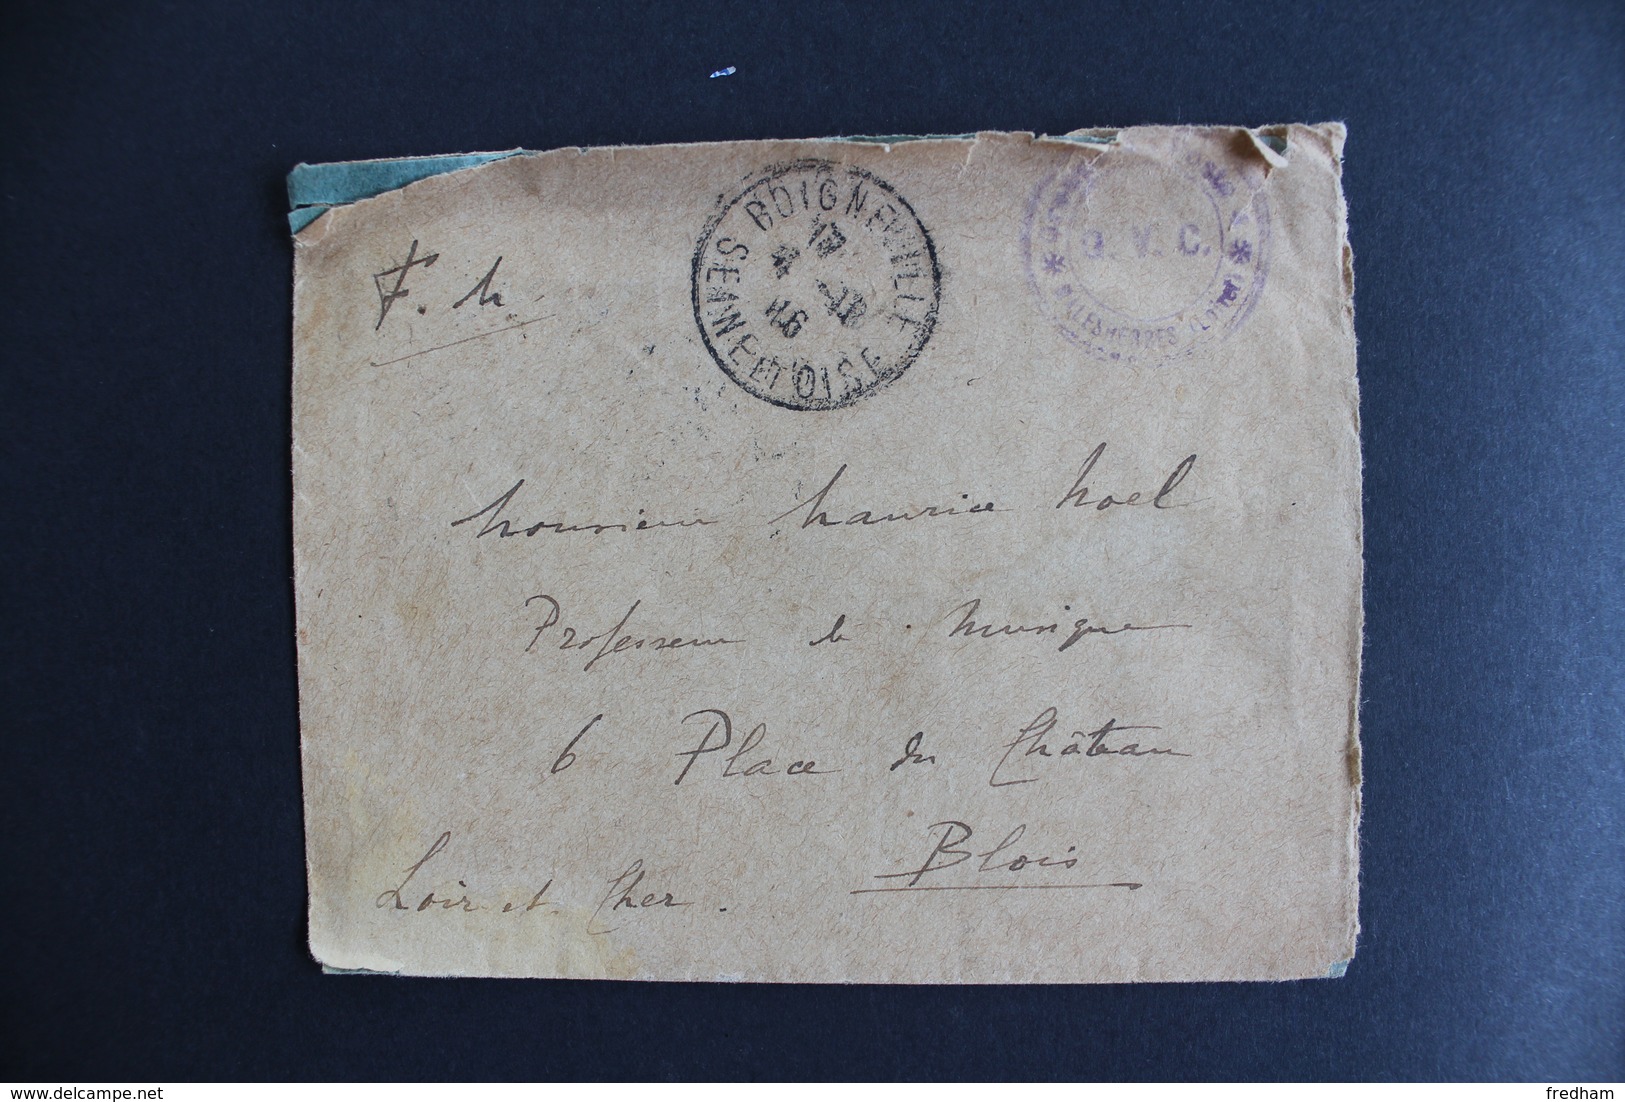 F. M.
BOIGNEVILLE
SEINE ET OISE
G. V. C.
MALESHERBES (LOIRET)
Monsieur Maurice Noel
Professeur de Musique
6 Place du Château
Blois
Loir et Cher.
delcampe.net
fredham